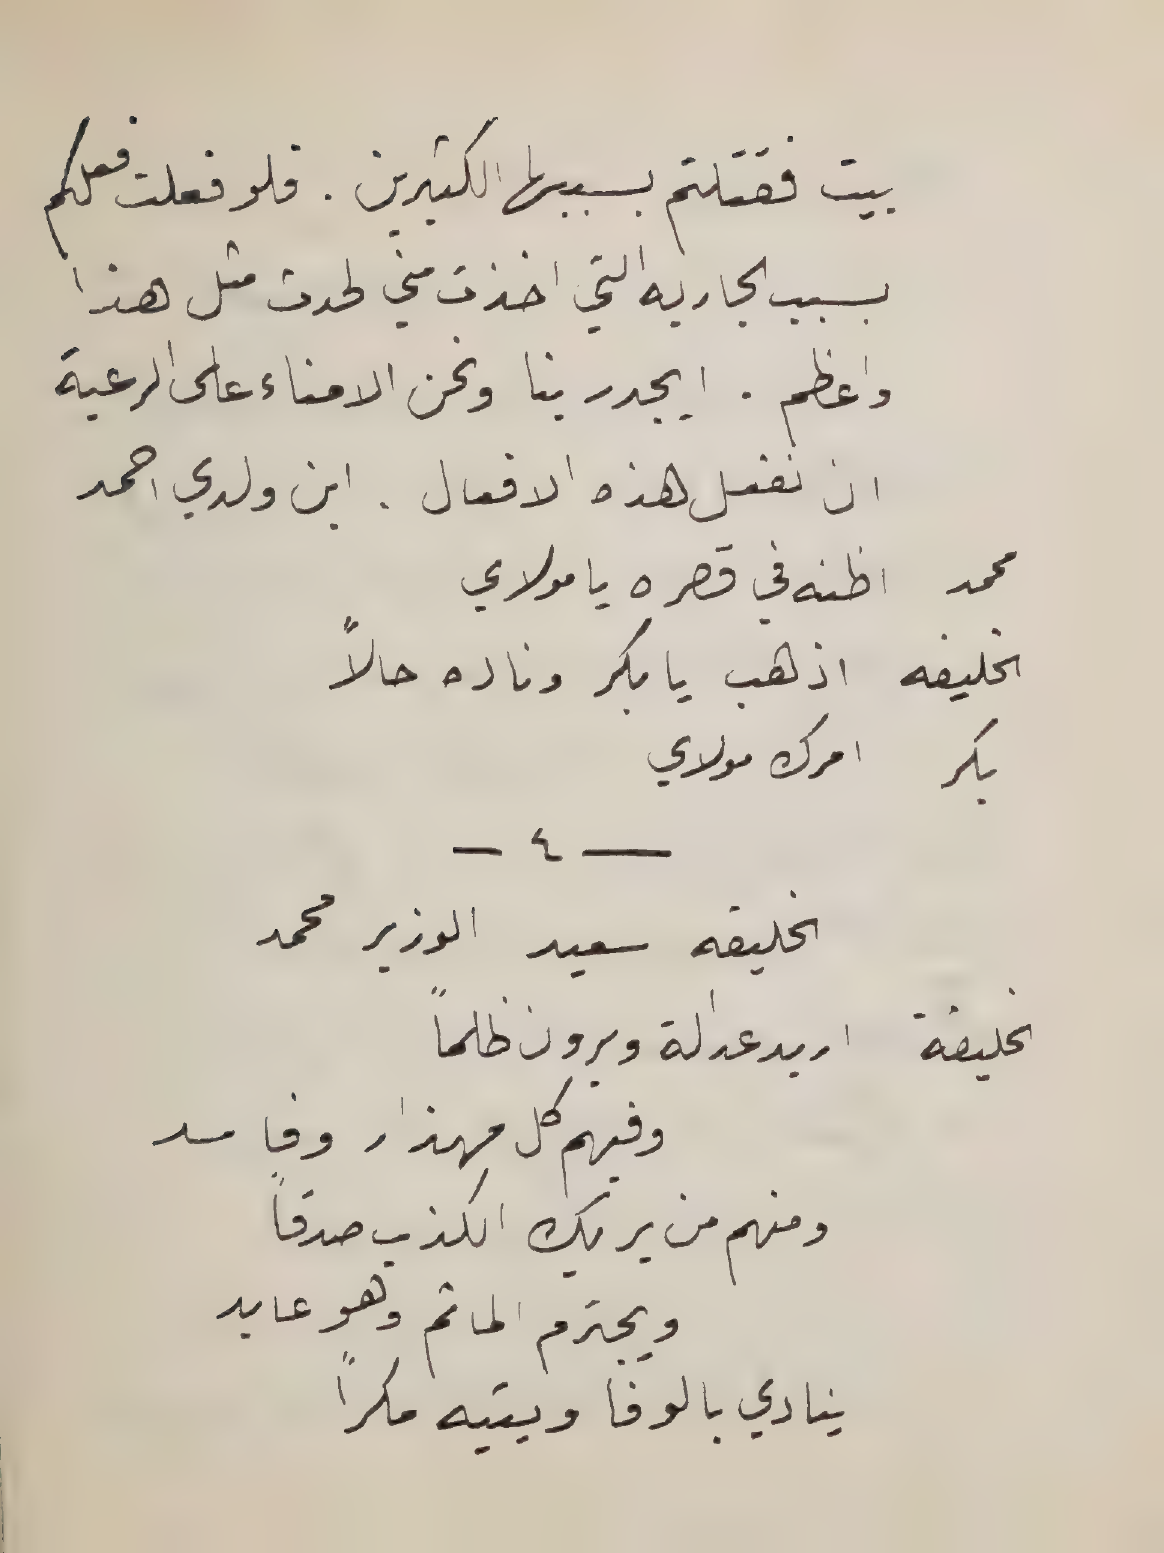 بيت فقتلتم بسببها الكثيرين . فلو فعلت فعلكم
بسبب الجاريه التي اخذت مني لحدث مثل هذا
واعظم . ايجدر بنا ونحن الامناء على الرعية
ان نفعل هذه الافعال . اين ولدي احمد
محمد اظنه في قصره يا مولاي
الخليفه اذهب يا بكر وناده حالاً
بكر امرك مولاي
— ٤ —
الخليفه سعيد الوزير محمد
الخليفة اريد عدالة ويرون ظلماً
وفيهم كل مهذار وفاسد
ومنهم من يريك الكذب صدقاً
ويجترم الماثم وهو عابد
ينادي بالوفا ويتيه مكراً